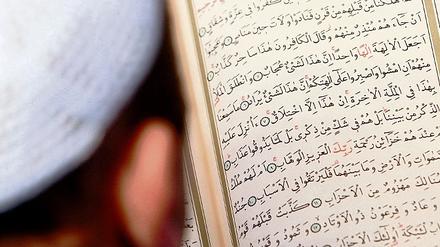 كفروا في عزة وشقاق
هلكنا من قبلهم من قرن فنادوا ولات حين مناص
أَن جَاءَهُم مُّنذِرٌ مِّنْهُمْ وَقَالَ الْكَافِرُونَ هَذَا سَاحِرٌ كَذَّابٌ
أَجَعَلَ الْآلِهَةَ إِلَهًا وَاحِدًا إِنَّ هَذَا لَشَيْءٌ عُجَابٌ وَانطَلَقَ الْمَلَأُ
مِنْهُمْ أَنِ امْشُوا وَاصْبِرُوا عَلَى آلِهَتِكُمْ إِنَّ هَذَا لَشَيْءٌ يُرَادُ مَا سَمِعْنَا
بِهَذَا فِي الْمِلَّةِ الْآخِرَةِ إِنْ هَذَا إِلَّا اخْتِلَاقٌ أَأُنزِلَ عَلَيْهِ
الذِّكْرُ مِن بَيْنِنَا بَلْ هُمْ فِي شَكٍّ مِّن ذِكْرِي بَل لَّمَّا يَذُوقُوا عَذَابِ
عِندَهُمْ خَزَائِنُ رَحْمَةِ رَبِّكَ الْعَزِيزِ الْوَهَّابِ أَمْ لَهُم مُّلْكُ
وَالْأَرْضِ وَمَا بَيْنَهُمَا فَلْيَرْتَقُوا فِي الْأَسْبَابِ جُندٌ
هُنَالِكَ مَهْزُومٌ مِّنَ الْأَحْزَابِ كَذَّبَتْ قَبْلَهُمْ قَوْمُ
وَعَادٌ وَفِرْعَوْنُ ذُو الْأَوْتَادِ وَثَمُودُ وَقَوْمُ
أُولَئِكَ